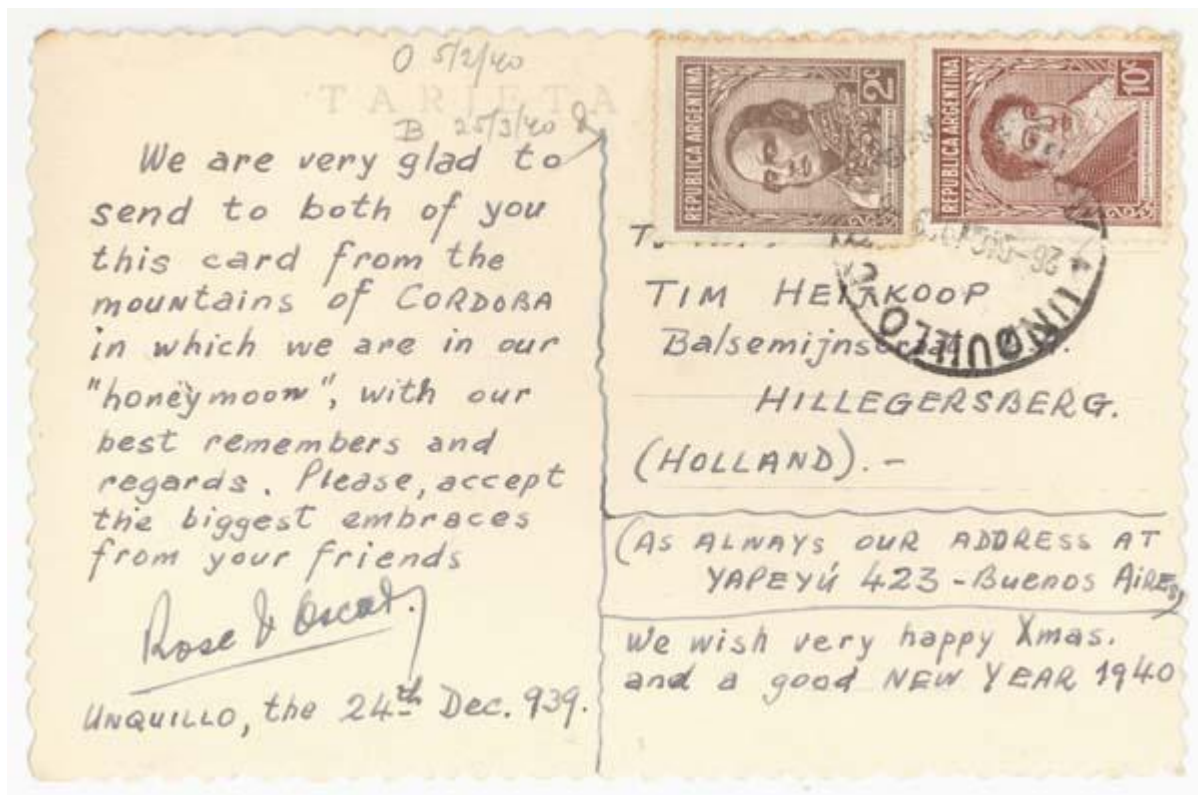 O 5/2/40
TARJETA
B 25/3/40
We are very glad to
send to both of you
this card from the
mountains of CORDOBA
in which we are in our
"honeymoon", with our
best remembers and
regards. Please, accept
the biggest embraces
from your friends
Rose & Oscar.
UNQUILLO, the 24th Dec. 939.
REPUBLICA ARGENTINA
2c
REPUBLICA ARGENTINA
10c
26-DIC
UNQUILLO
TIM HEIJKOOP
HILLEGERSBERG.
(HOLLAND).-
(AS ALWAYS OUR ADDRESS AT
YAPEYÚ 423 - Buenos Aires)
We wish very happy Xmas.
and a good NEW YEAR 1940